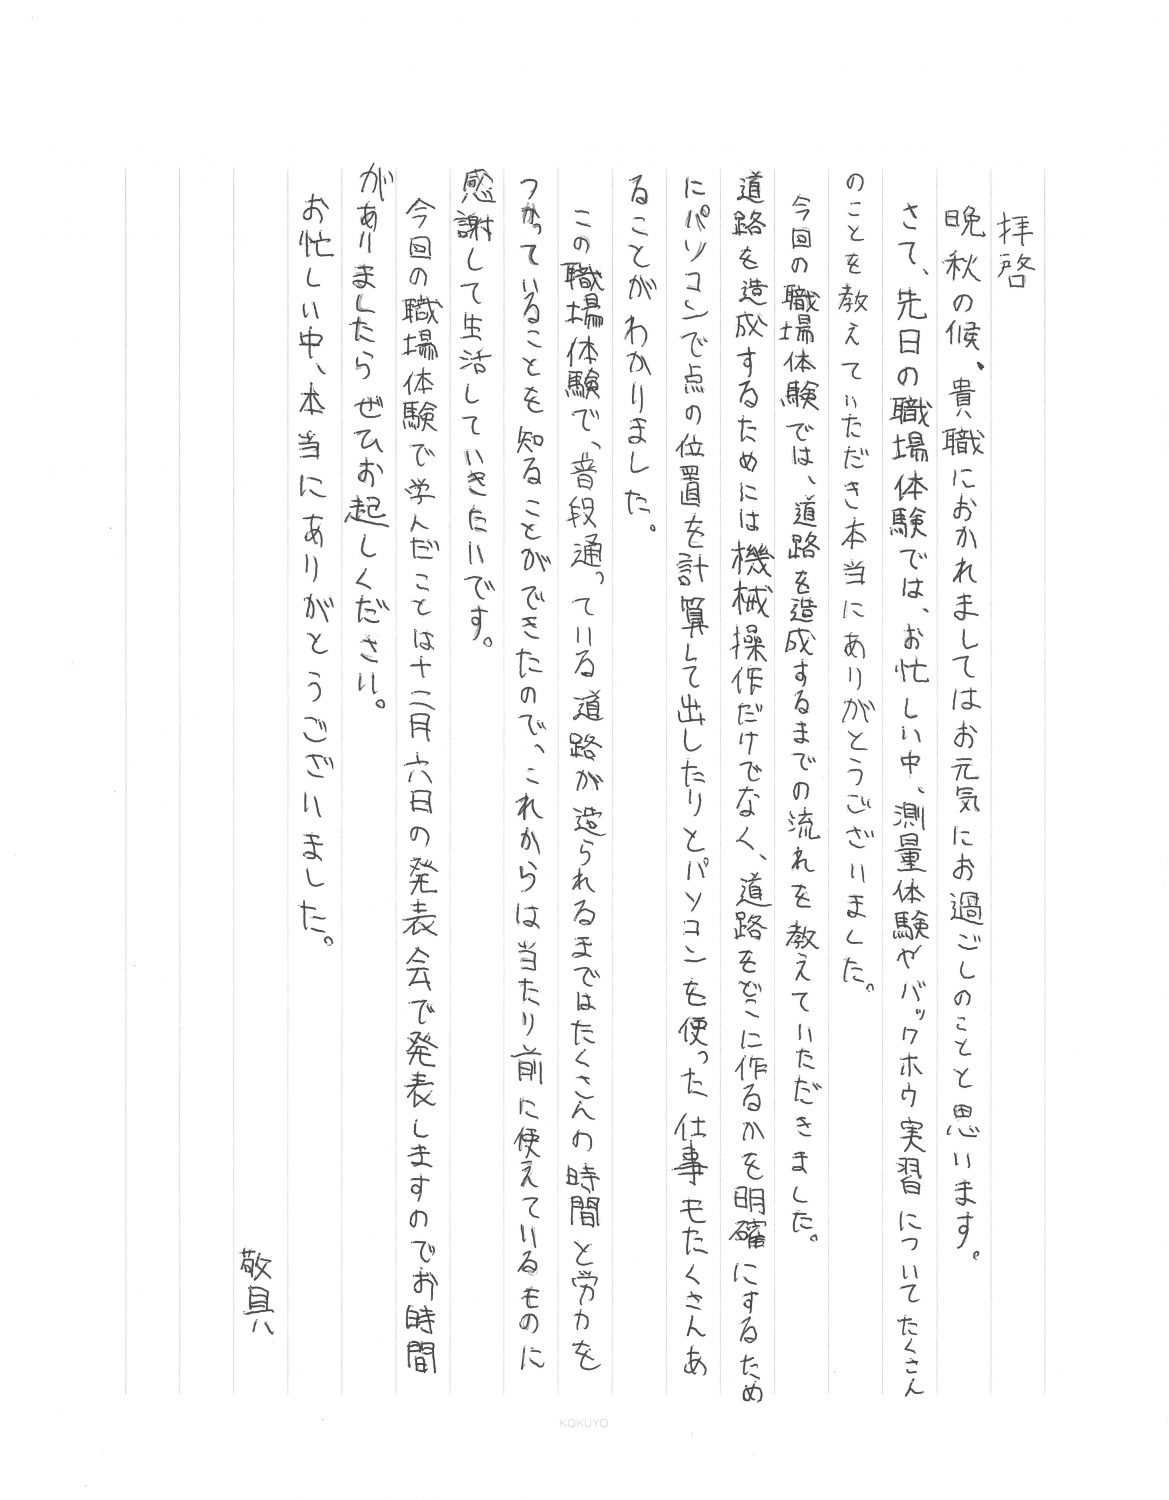 拝啓
晩秋の候、貴職におかれましてはお元気にお過ごしのことと思います。
さて、先日の職場体験では、お忙しい中、測量体験やバックホウ実習についてたくさん
のことを教えていただき本当にありがとうございました。
今回の職場体験では、道路を造成するまでの流れを教えていただきました。
道路を造成するためには機械操作だけでなく、道路をどこに作るかを明確にするため
にパソコンで点の位置を計算して出したりとパソコンを使った仕事もたくさんあ
ることがわかりました。
この職場体験で、普段通っている道路が造られるまではたくさんの時間と労力を
つかっていることを知ることができたので、これからは当たり前に使えているものに
感謝して生活していきたいです。
今回の職場体験で学んだことは十二月六日の発表会で発表しますのでお時間
がありましたらぜひお起しください。
お忙しい中、本当にありがとうございました。
敬具
KOKUYO